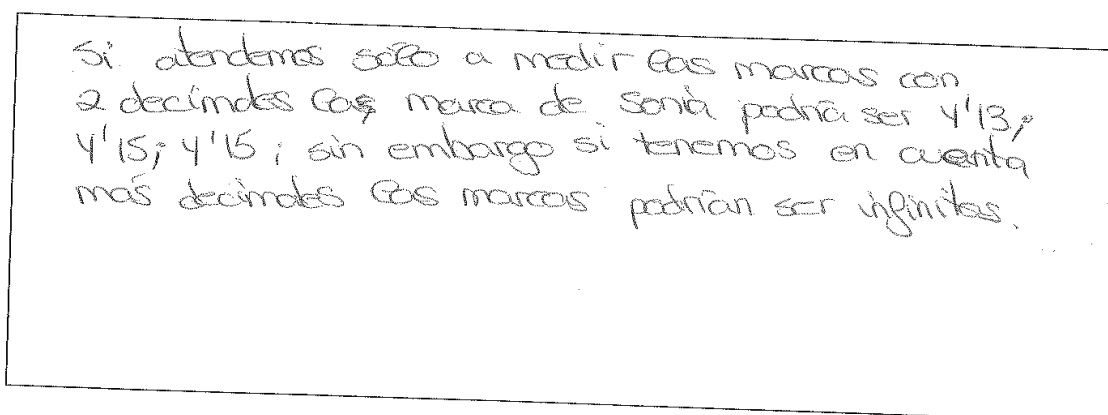 Si atendemos solo a medir las marcas con
2 decimales las marca de Sonia podría ser 4'13;
4'15; 4'15; sin embargo si tenemos en cuenta
más decimales las marcas podrían ser infinitas.